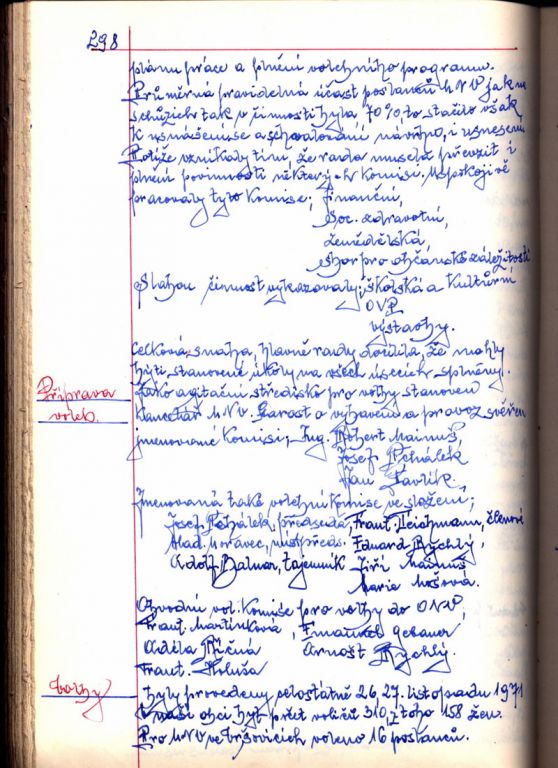 298
plánu práce a plnění volebního programu.
Průměrná pravidelná účast poslanců MNV jak na
schůzích tak v činnosti byla 70%, to stačilo však
k usnášení se a schvalování návrhů, i usnesení
Potíže vznikaly tím, že rada musela převzít i
plnění povinností některých komisí. Uspokojivě
pracovaly tyto komise; finanční,
soc. zdravotní,
zemědělská,
sbor pro občanské záležitosti
Slabou činnost vykazovaly; školská a kulturní
OVP
výstavby.
Celková snaha, hlavně rady docílila, že mohly
býti stanovené úkoly na všech úsecích splněny.
Příprava
voleb.
Jako agitační středisko pro volby stanoven
kancelář MNV. Starost o vybavení a provoz svěřen
jmenované komisi; Ing. Robert Mainuš,
Josef Pchálek,
Jan Pavlík.
Jmenovaná také volební komise ve složení;
Josef Pchálek, předseda, Frant. Teichmann, členové
Vlad. Moravec, místpředs. Eduard Rychlý,
Adolf, tajemník Jiří Mainuš
Marie
Obvodní vol. komise pro volby do ONV,
Frant. Martinková, Emanuel Gebauer
Adéla Říčná Arnošt Rychlý.
Frant. Holuša
Volby
byly provedeny celostátně 26, 27. listopadu 1971
V naší obci byl počet voličů 310, z toho 158 žen.
Pro MNV ve Gršovicích voleno 16 poslanců.